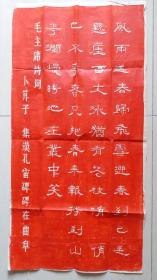 風雨送春歸飛雪迎春到已是
懸崖百丈冰猶有花枝俏俏
也不爭春只把春來報待到山
花爛漫時她在叢中笑
毛主席詩詞
卜算子 集漢孔宙碑碑在曲阜